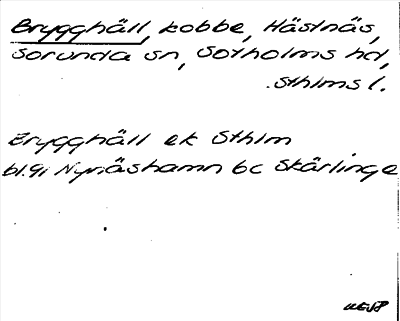 Brygghäll, kobbe, Hästnäs,
Sorunda sn, Sotholms hd,
Sthlms l.
Brygghäll ek Sthlm
bl.91 Nynäshamn bc Skärlinge